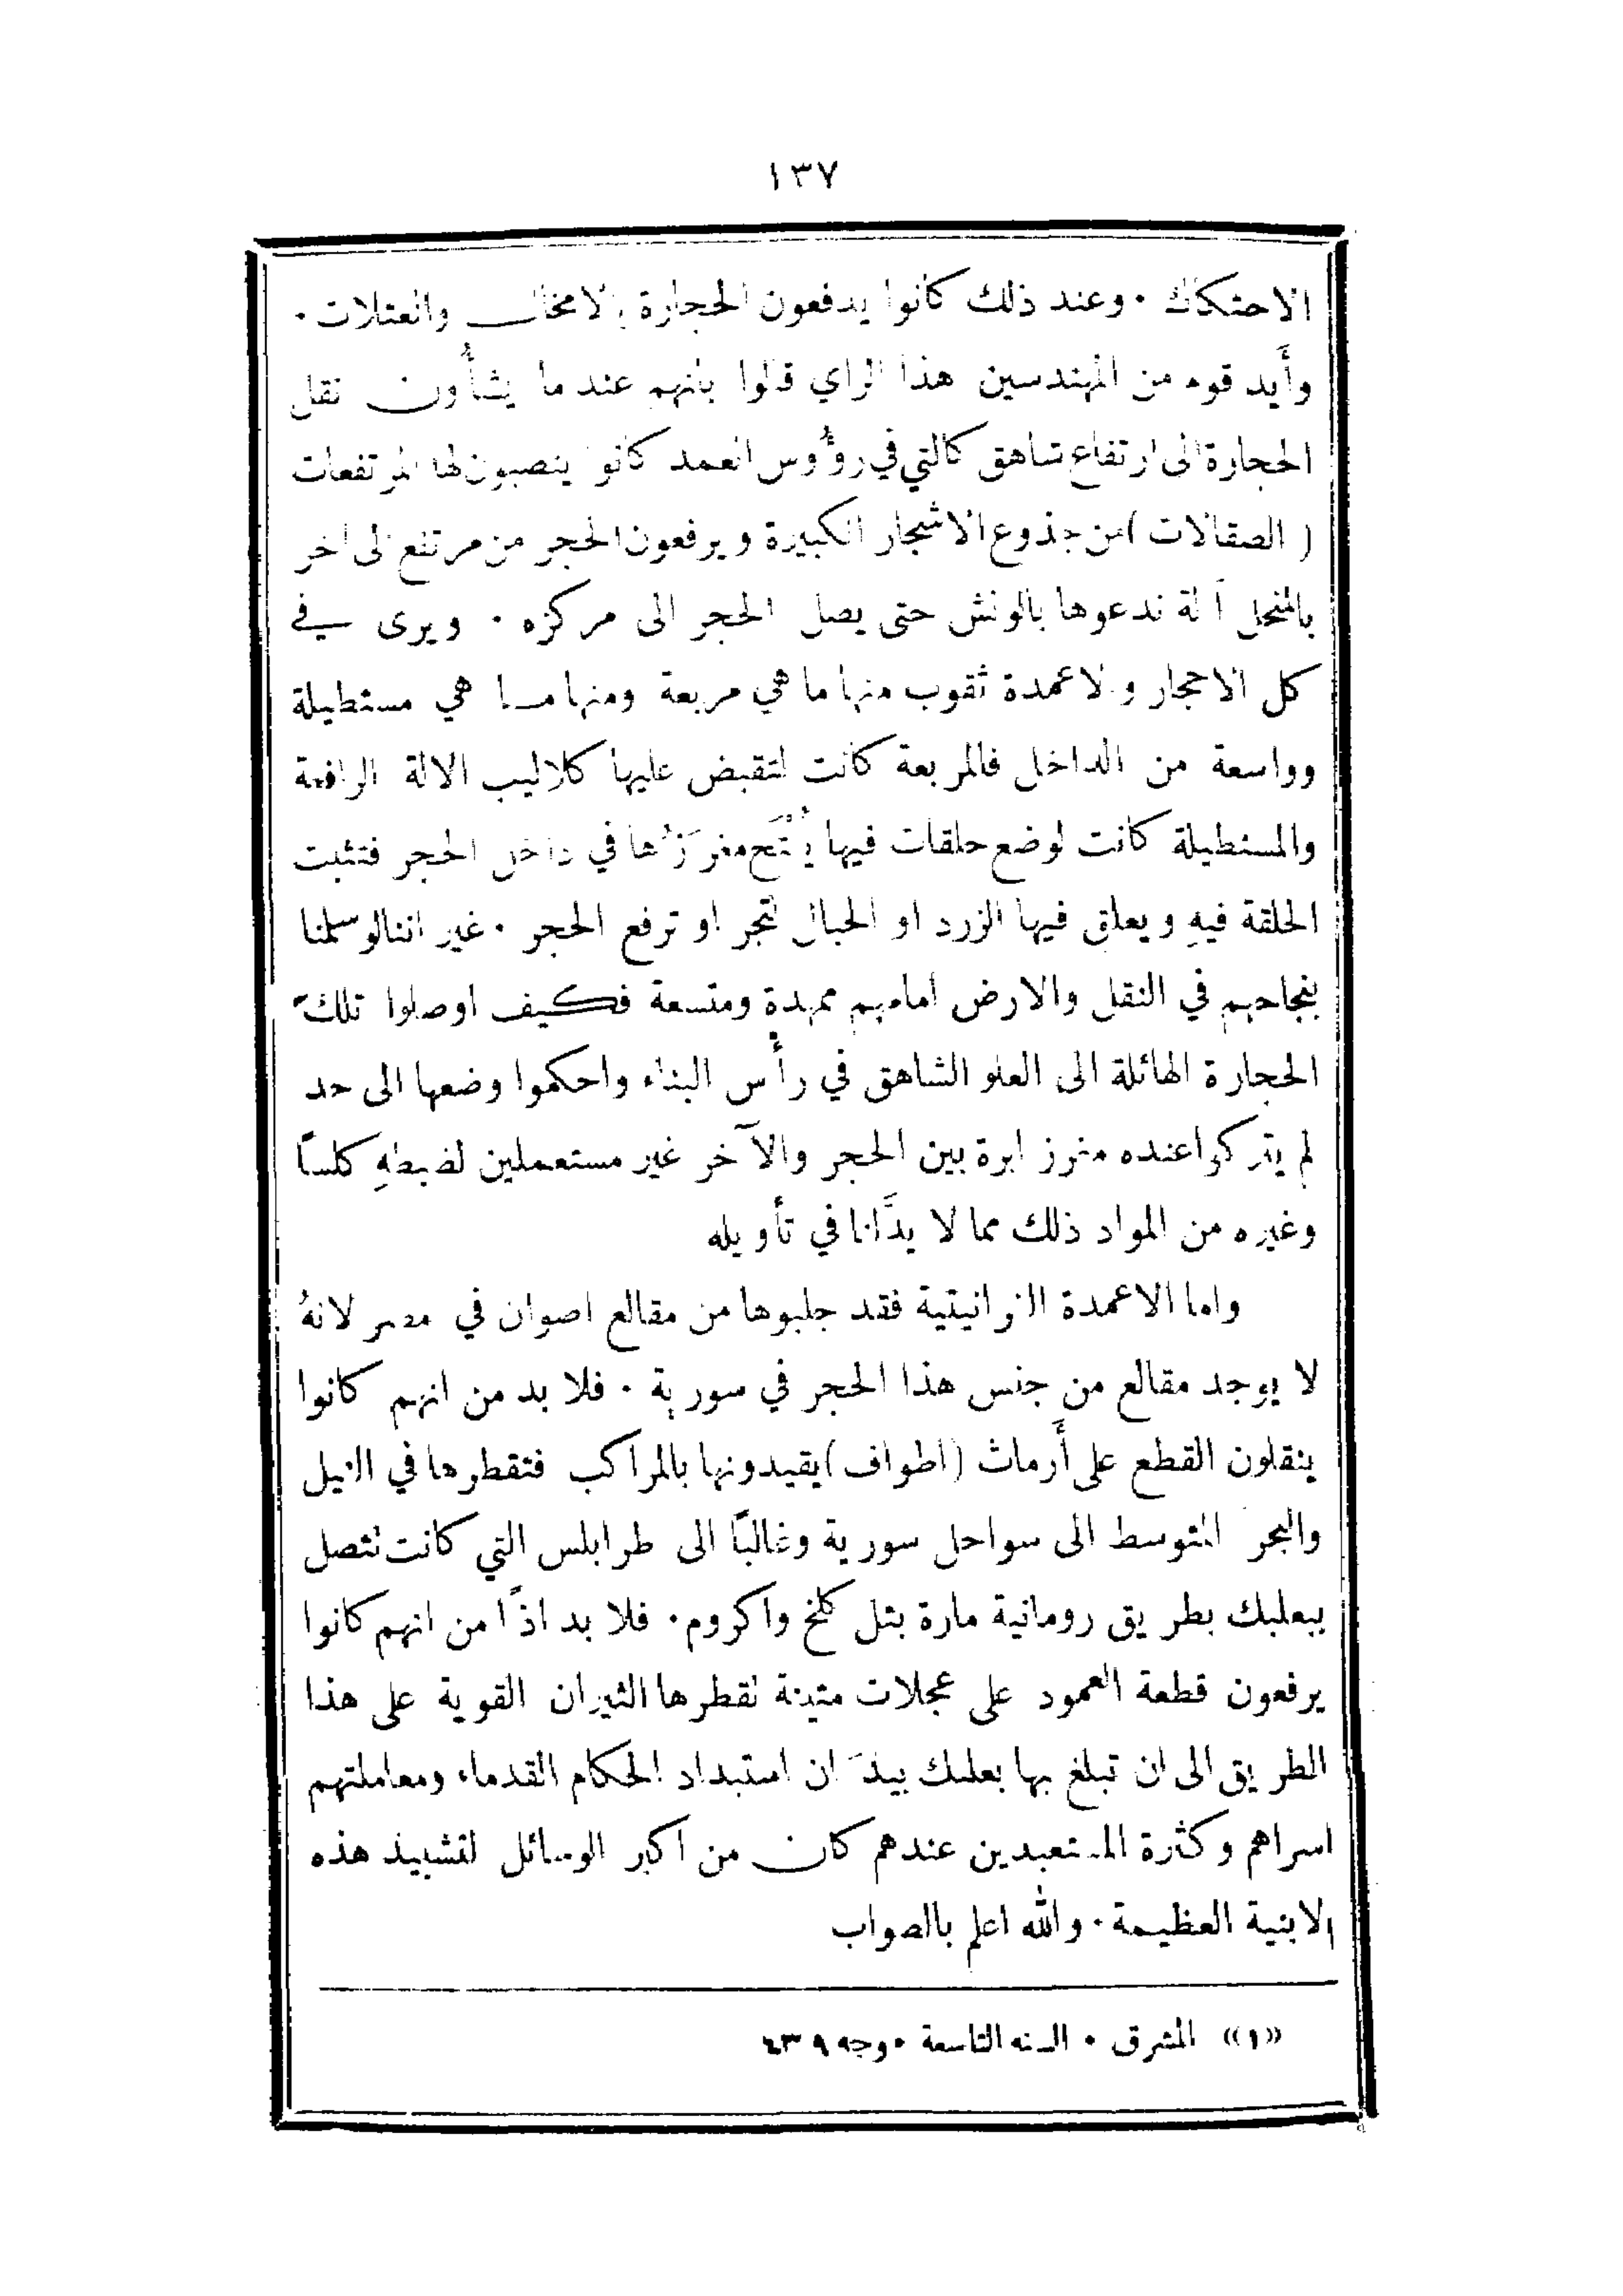 ١٣٧
الاحتكاك ٠ وعند ذلك كانوا يدفعون الحجارة بالامخال والعتلات ٠
وأَيد قوم من المهندسين هذا الراي قالوا بانهم عند ما يشأُون نقل
الحجارة الى ارتفاع شاهق كالتي في روُّوس العمد كانوا ينصبون لها المرتفعات
( الصقالات ) من جذوع الاشجار الكبيرة ويرفعون الحجر من مرتفع الى اخر
بالمنجل آلة ندعوها بالونش حتى يصل الحجر الى مركزه ٠ ويرى في
كل الاحجار والاعمدة ثقوب منها ما هي مربعة ومنها ما هي مستطيلة
وواسعة من الداخل فالمربعة كانت لتقبض عليها كلاليب الالة الرافعة
والمستطيلة كانت لوضع حلقات فيها في داخل الحجر فتثبت
الحلقة فيهِ ويعلق فيها الزرد او الحبال لتجر او ترفع الحجر ٠ غير اننا لو سلمنا
بنجاحهم في النقل والارض امامهم ممهدة ومتسعة فكيف اوصلوا تلك
الحجارة الهائلة الى العلو الشاهق في رأْس البناء واحكموا وضعها الى حد
لم يتركوا عنده مغرز ابرة بين الحجر والآخر غير مستعملين لضبطهِ كلسًا
وغيره من المواد ذلك مما لا يدَّ لنا في تأويله
واما الاعمدة الغرانيتية فقد جلبوها من مقالع اصوان في مصر لانهُ
لا يوجد مقالع من جنس هذا الحجر في سورية ٠ فلا بد من انهم كانوا
ينقلون القطع على أَرماث (اطواف) يقيدونها بالمراكب فتقطرها في النيل
والبحر المتوسط الى سواحل سورية وغالبًا الى طرابلس التي كانت تتصل
ببعلبك بطريق رومانية مارة بتل كلخ واكروم ٠ فلا بد اذًا من انهم كانوا
يرفعون قطعة العمود على عجلات متينة تقطرها الثيران القوية على هذا
الطريق الى ان تبلغ بها بعلبك بيدَ ان استبداد الحكام القدماء ومعاملتهم
اسراهم وكثرة المستعبدين عندهم كان من اكبر الوسائل لتشييد هذه
الابنية العظيمة ٠ والله اعلم بالصواب
«١» المشرق ٠ السنه التاسعة ٠ وجه ٤٣٩